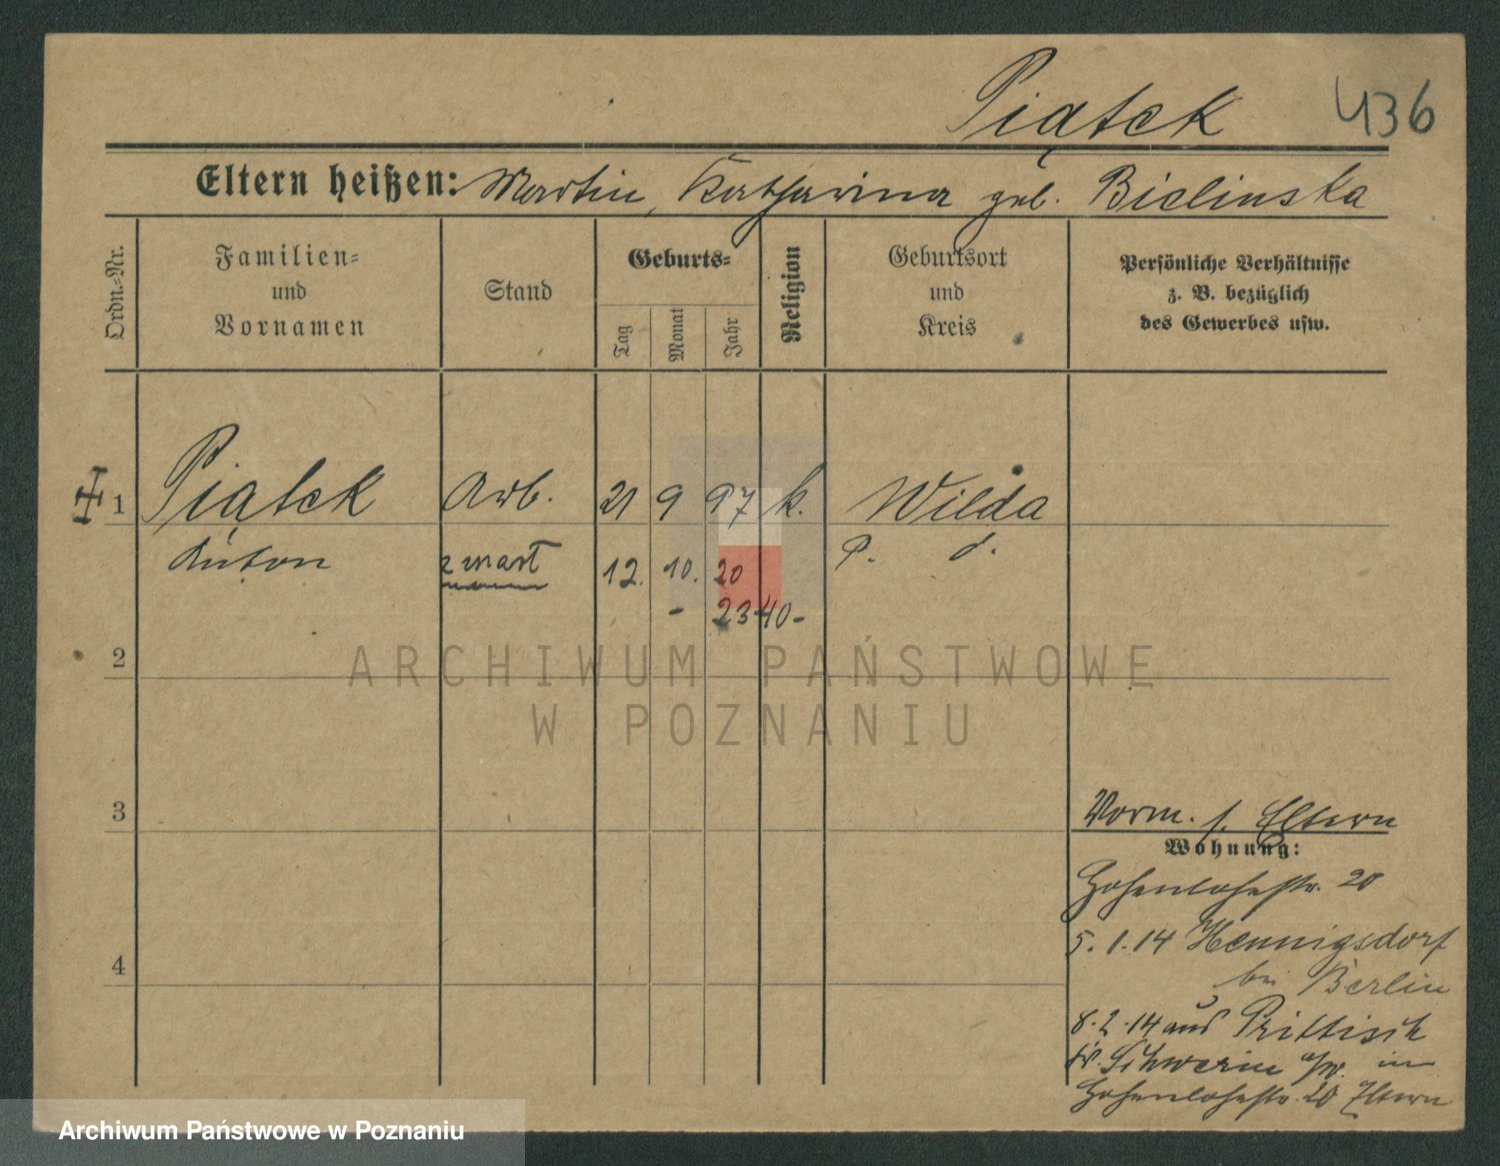 Piątek 436
Eltern heißen: Martin, Katharina geb. Bielinska
Ordn.-Nr.
Familien-
und
Vornamen
Stand
Geburts-
Tag
Monat
Jahr
Religion
Geburtsort
und
Kreis
Persönliche Verhältnisse
z. B. bezüglich
des Gewerbes usw.
1 Piątek Arb. 21 9 97 k. Wilda
Anton zmarł 12. 10. 20 P. d.
- 2340-
2
ARCHIWUM PAŃSTWOWE
W POZNANIU
3
4
Vorm. s. Eltern
Wohnung:
Hohenlohestr. 20
5.1.14 Hennigsdorf
bei Berlin
8.2.14 aus Prittisch
Kr. Schwerin a/W. in
Hohenlohestr. 20 Eltern
Archiwum Państwowe w Poznaniu